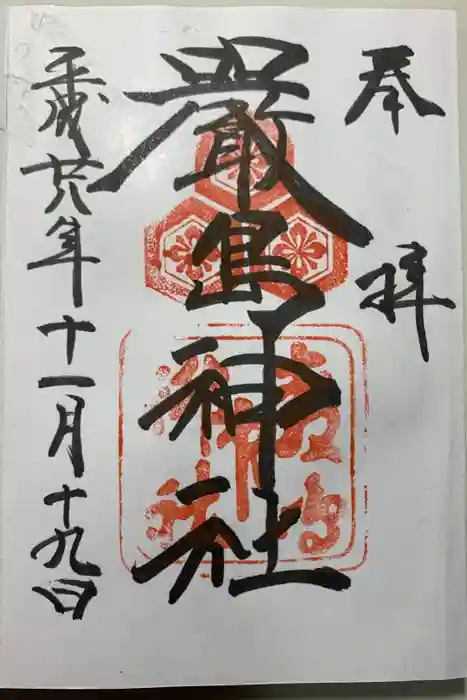 奉拝
嚴島神社
平成廿八年十一月十九日